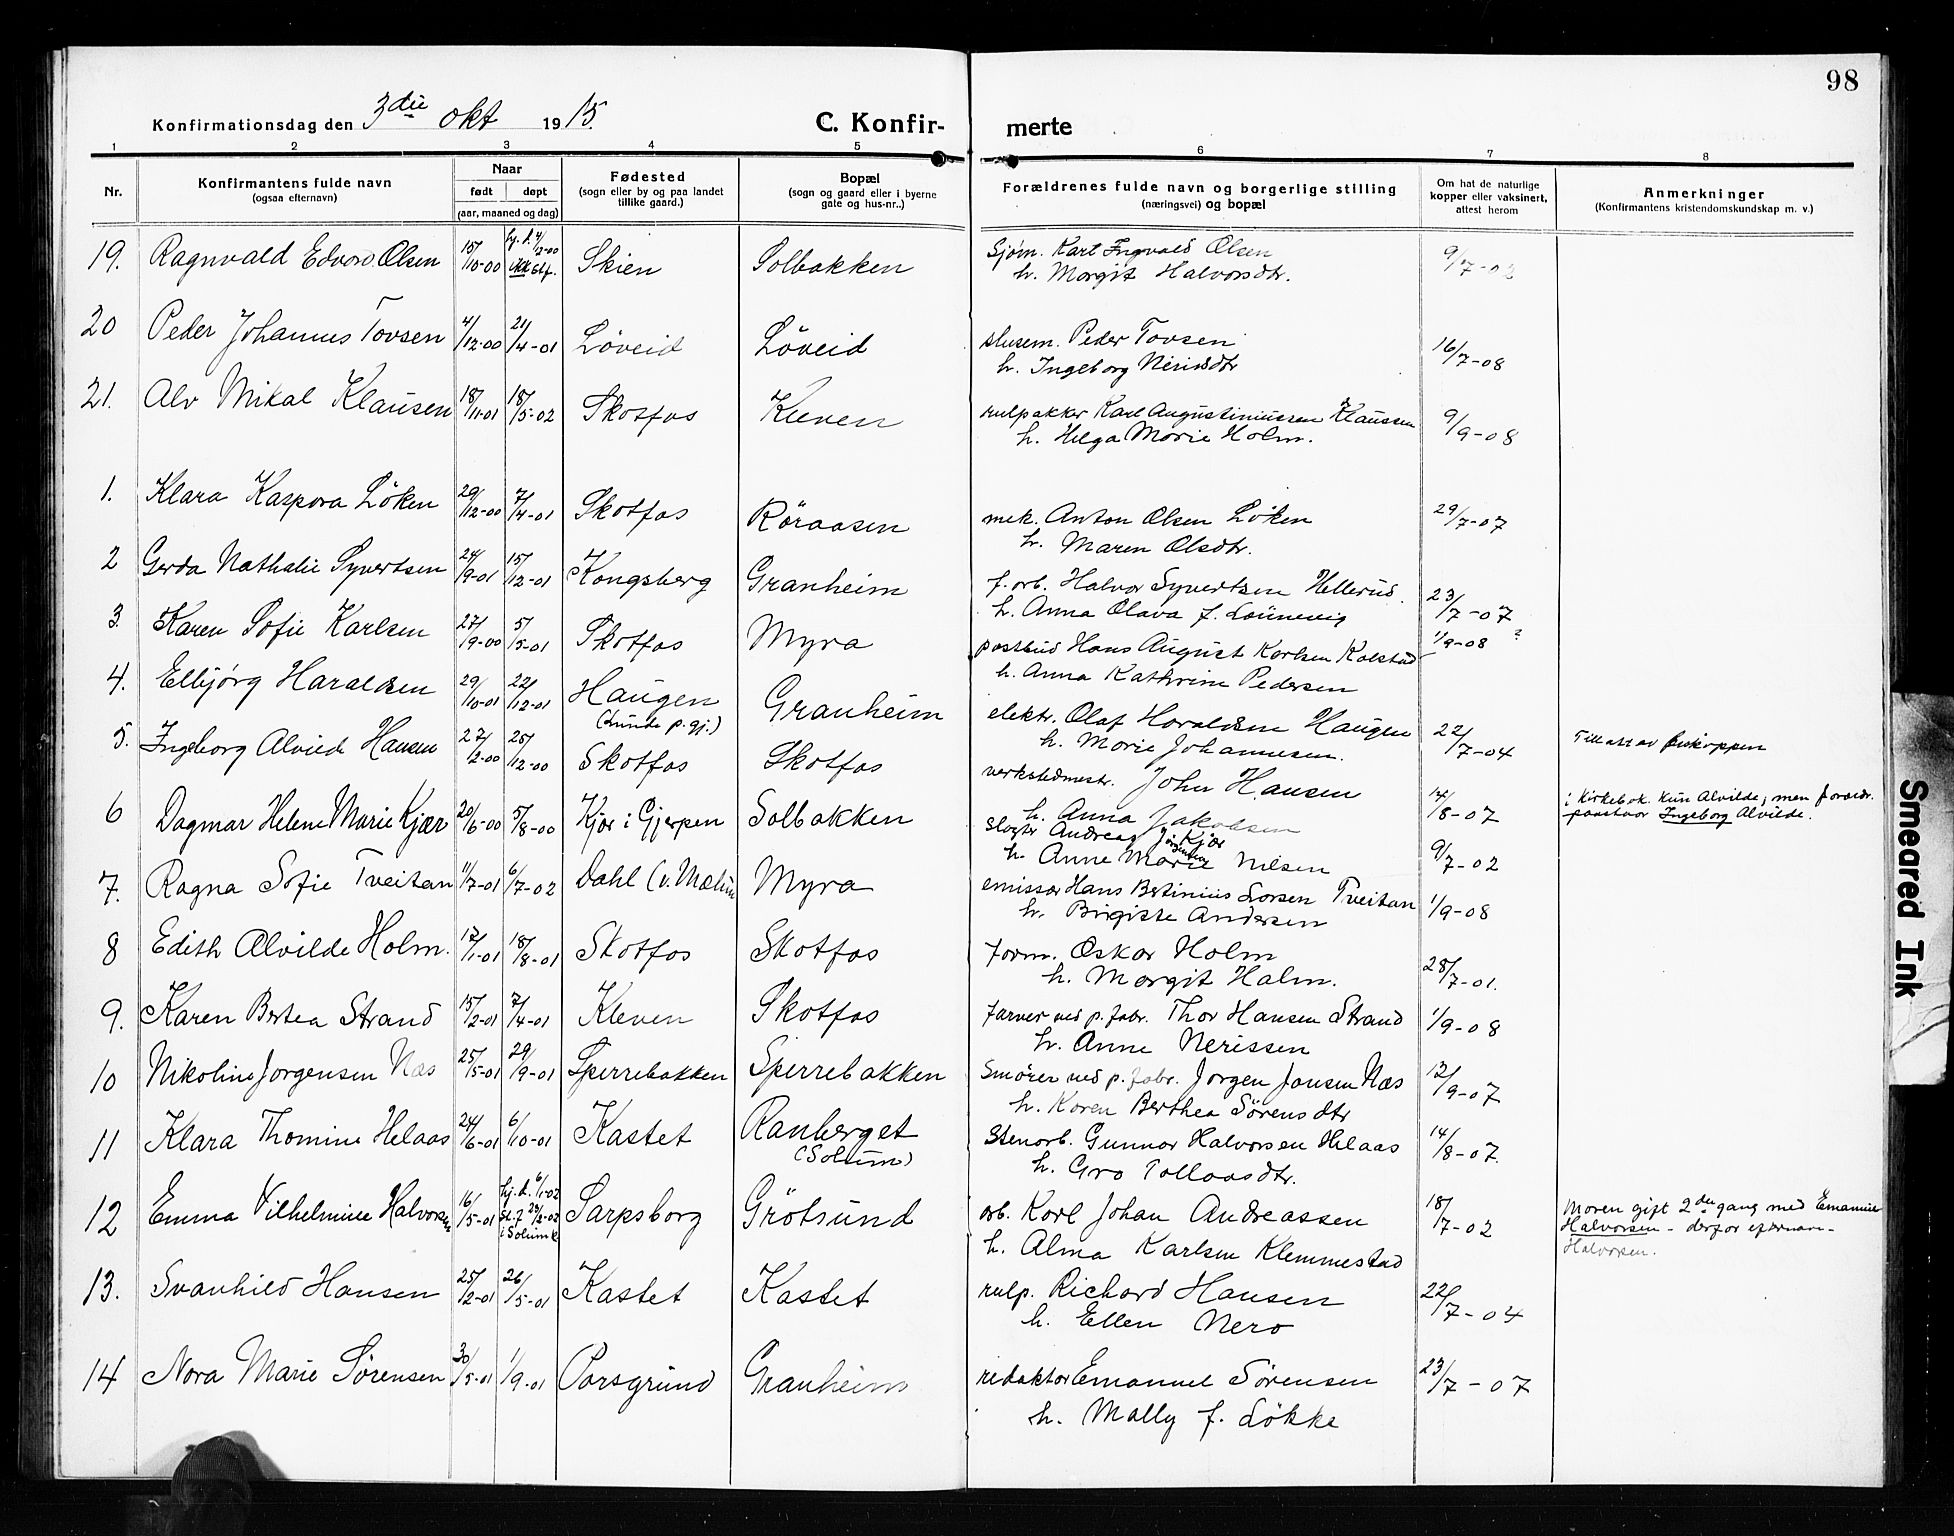 98
Konfirmationsdag den 3die okt 1915.
C. Konfir-merte
1 2 3 4 5 6 7 8
Nr.
Konfirmantens fulde navn
(ogsaa efternavn)
Naar
født døpt
(aar, maaned og dag)
Fødested
(sogn eller by og paa landet
tillike gaard.)
Bopæl
(sogn og gaard eller i byerne
gate og hus-nr..)
Forældrenes fulde navn og borgerlige stilling
(næringsvei) og bopæl
Om hat de naturlige
kopper eller vaksinert,
attest herom
Anmerkninger
(Konfirmantens kristendomskundskap m. v.)
19. Ragnvald Edvard Olsen 15/10-00 hj.d. 4/12-00 Skien Solbakken Sjøm. Karl Ingvald Olsen 9/7-02
h. Margit Halvorsdtr.
20 Peder Johannes Tovsen 4/12-00 21/4-01 Løveid Løveid slusem. Peder Tovsen 16/7-08
h. Ingeborg Nirisdtr
21. Alv Mikal Klausen 18/11-01 18/5-02 Skotfos Kleven rulpakker Karl Augustiniussen Klaussen 9/9-08
h. Helga Marie Holm.
1. Klara Kaspara Löken 29/12-00 7/4-01 Skotfos Röraasen mek. Anton Olsen Löken 29/7-07
h. Maren Olsdtr.
2 Gerda Nathalie Syvertsen 24/9-01 15/12-01 Kongsberg Granheim f. arb. Halvor Syvertsen Hellerud. 23/7-07
h. Anna Olava f. Launevig
3. Karen Sofie Karlsen 27/9-00 5/5-01 Skotfos Myra postbud Hans August Karlsen Kolstad 1/9-08 ?
h. Anna Kathrine Pedersen
4. Elbjørg Haraldsen 29/10-01 22/12-01 Haugen Granheim elektr. Olaf Haraldsen Haugen 22/7-04 Tillatt av biskoppen
(Lunde p. gj.) h. Marie Johannesen.
5. Ingeborg Alvilde Hansen 27/2-00 25/12-00 Skotfos Skotfos verkstedmestr. John Hansen 14/8-07 i Kirkebok. kun Alvilde; men foreldr.
h. Anna Jakobsen paastaar Ingeborg Alvilde.
6 Dagmar Helene Marie Kjær 20/6-00 5/8-00 Kjær i Gjerpen Solbakken Slagtr Andreas Jørgensen Kjær 9/7-02
h. Anne Marie Nilsen
7. Ragna Sofie Tveitan 11/7-01 6/7-02 Dahl (v. Mælum Myra emissær Hans Bertinius Larsen Tveitan 1/9-08
h. Birgitte Andersen
8 Edith Alvilde Holm. 17/1-01 18/8-01 Skotfos Skotfos form. Oskar Holm 28/7-01.
h. Margit Halm.
9. Karen Bertea Strand 15/2-01 7/4-01 Kleven Skotfos farver ved p. fabr. Thor Hansen Strand 1/9-08
h. Anne Nerissen
10 Nikoline Jørgensen Næs 25/5-01 29/9-01 Sperrebakken Sperrebakken Smører ved p. fabr. Jørgen Jansen Næs 12/9-07
h. Karen Berthea Sörensdtr
11 Klara Thomine Helaas 24/6-01 6/10-01 Kastet Ranberget Stenarb. Gunnar Halvorsen Helaas 14/8-07.
(Solum) h. Gro Tollaasdtr.
12 Emma Vilhelmine Halvorsen 16/5-01 hj.d. 6/1-02 Sarpsborg Grötsund arb. Karl Johan Andreassen 18/7-02 Moren gift 2den gang med Emanuel
i Solum k h. Alma Karlsen Klemmestad Halvorsen - derfor efternavn -
Halvorsen.
13. Svanhild Hansen 25/2-01 26/5-01 Kastet Kastet rulp. Richard Hansen 22/7-04
h. Ellen Nero
14 Nora Marie Sørensen 30/5-01 1/9-01 Porsgrund Granheim redaktør Emanuel Sörensen 23/7-07
h. Mally f. Løkke
Smeared Ink